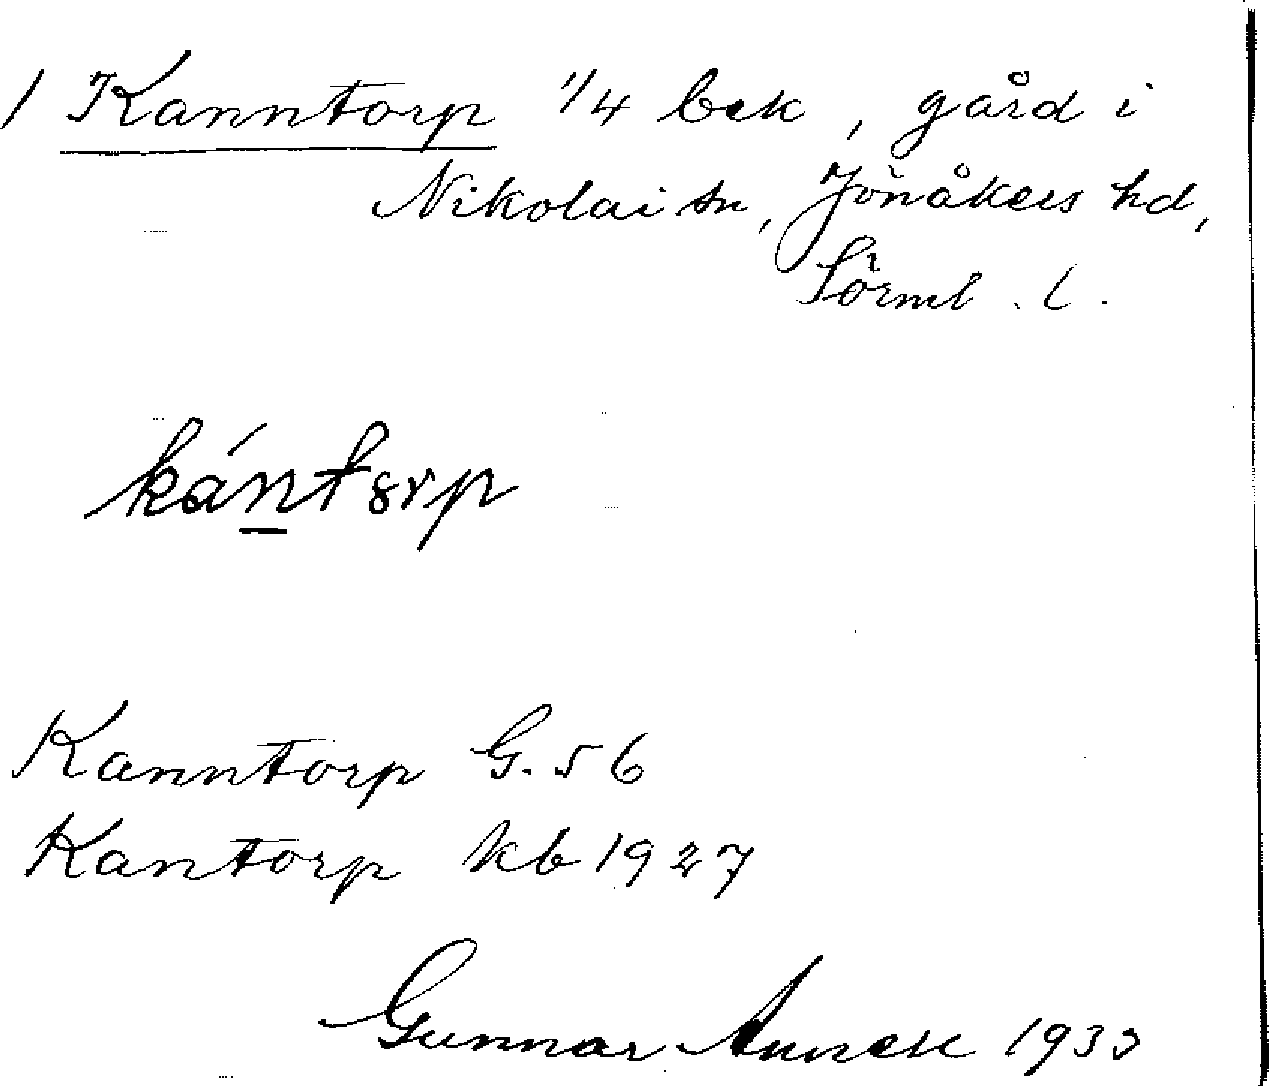 1 Kanntorp 1/4 bek, gård i
Nikolai sn, Jönåkers hd,
Sörml. l.
kántorp
Kanntorp G. 56
Kantorp kb 1927
Gunnar 1933